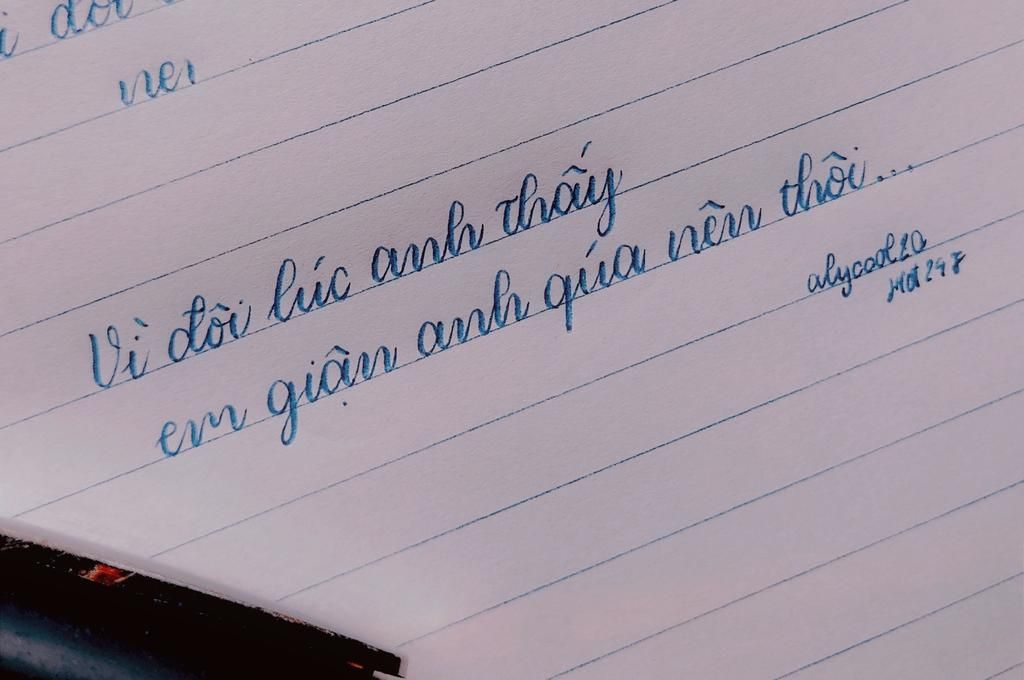 đôi
Vì đôi lúc anh thấy
em giận anh qúa nên thôi...
alycool20